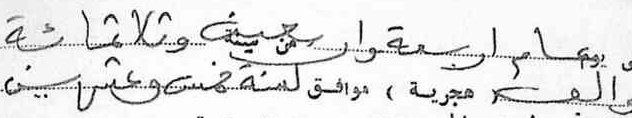 عام اربعة واربعين من سنة وثلاثمائة
والف ( هجرية ) موافق لسنة خمس وعشرين